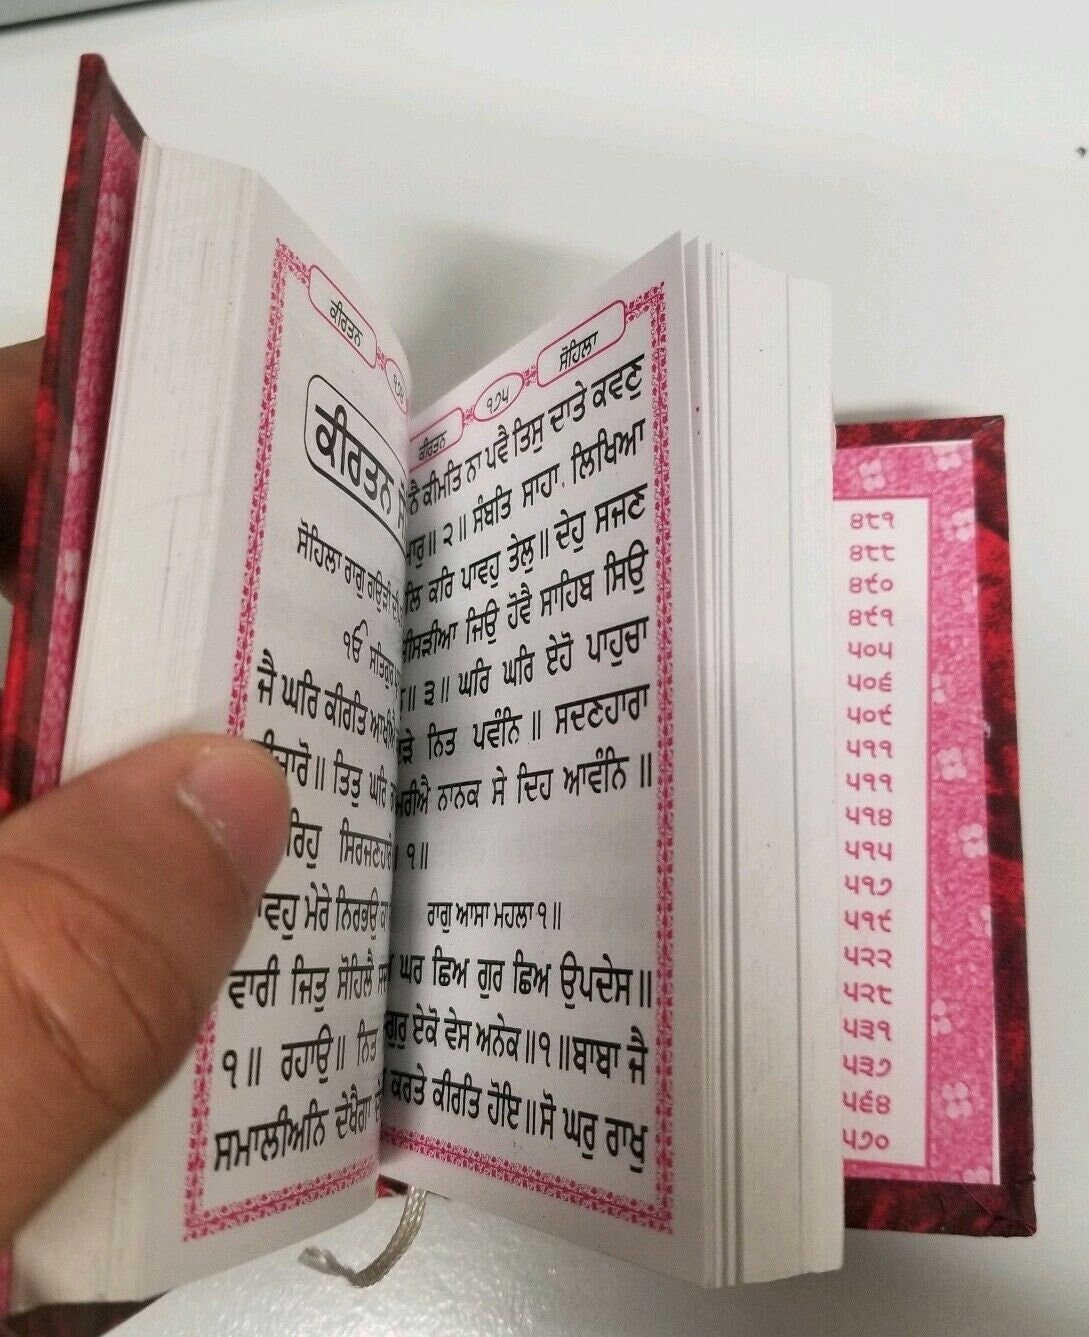 ਕੀਰਤਨ
ਕੀਰਤਨ
ਸੋਹਿਲਾ ਰਾਗੁ ਗਉੜੀ
ੴ ਸਤਿਗੁਰ
ਜੈ ਘਰਿ ਕੀਰਤਿ ਆਖੀਐ
ਤਿਤੁ ਘਰਿ
ਸਿਰਜਣਹਾਰੋ
ਮੇਰੇ ਨਿਰਭਉ ਕਾ
ਵਾਰੀ ਜਿਤੁ ਸੋਹਿਲੈ ਸਦਾ
੧॥ ਰਹਾਉ॥ ਨਿਤ
ਸਮਾਲੀਅਨਿ ਦੇਖੈਗਾ
ਕੀਰਤਨ ੧੭੫ ਸੋਹਿਲਾ
ਕੀਮਤਿ ਨਾ ਪਵੈ ਤਿਸੁ ਦਾਤੇ ਕਵਣੁ
॥੨॥ ਸੰਬਤਿ ਸਾਹਾ ਲਿਖਿਆ
ਕਰਿ ਪਾਵਹੁ ਤੇਲੁ॥ ਦੇਹੁ ਸਜਣ
ਅਸੀਸੜੀਆ ਜਿਉ ਹੋਵੈ ਸਾਹਿਬ ਸਿਉ
॥੩॥ ਘਰਿ ਘਰਿ ਏਹੋ ਪਾਹੁਚਾ
ਨਿਤ ਪਵੰਨਿ॥ ਸਦਣਹਾਰਾ
ਸਿਮਰੀਐ ਨਾਨਕ ਸੇ ਦਿਹ ਆਵੰਨਿ॥
੧॥
ਰਾਗੁ ਆਸਾ ਮਹਲਾ ੧॥
ਘਰ ਛਿਅ ਗੁਰ ਛਿਅ ਉਪਦੇਸ॥
ਗੁਰੁ ਏਕੋ ਵੇਸ ਅਨੇਕ॥੧॥ਬਾਬਾ ਜੈ
ਕਰਤੇ ਕੀਰਤਿ ਹੋਇ॥ਸੋ ਘਰੁ ਰਾਖੁ
੪੮੧
੪੮੮
੪੯੦
੪੯੧
੫੦੫
੫੦੬
੫੦੯
੫੧੧
੫੧੧
੫੧੪
੫੧੫
੫੧੭
੫੧੯
੫੨੨
੫੨੮
੫੩੧
੫੩੭
੫੬੪
੫੭੦